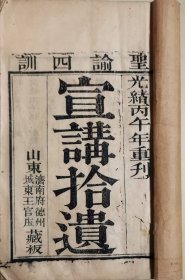 聖諭四訓
光緒丙午年重刊
宣講拾遺
山東濟南府德州
城東王官庄藏板